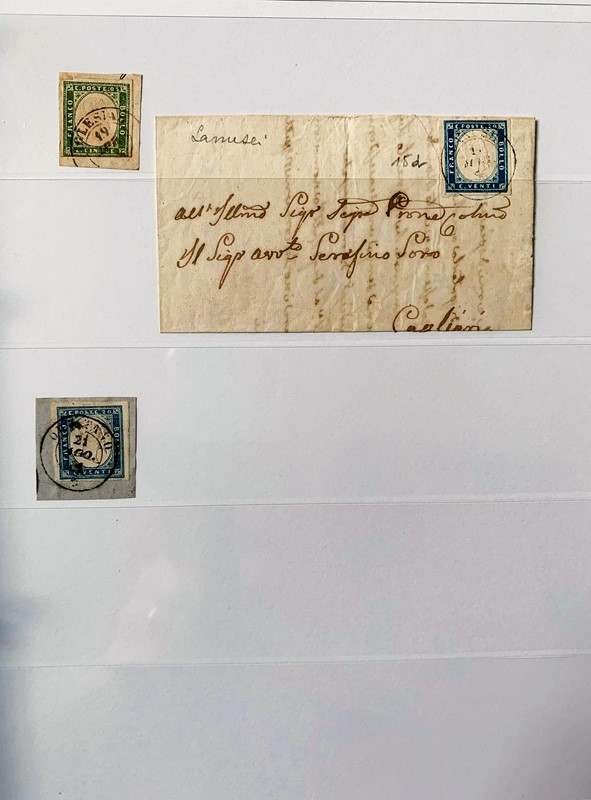 C. POSTE. 05
FRANCO
BOLLO
C. CINQUE
IGLESIA
19
Lanusei
15d
C. POSTE. 20
FRANCO
BOLLO
C. VENTI
All' Illmo Sigr Sigr
Il Sigr avvto Serafino Soro
Cagliari
C. POSTE. 20
FRANCO
BOLLO
C. VENTI
21
AGO